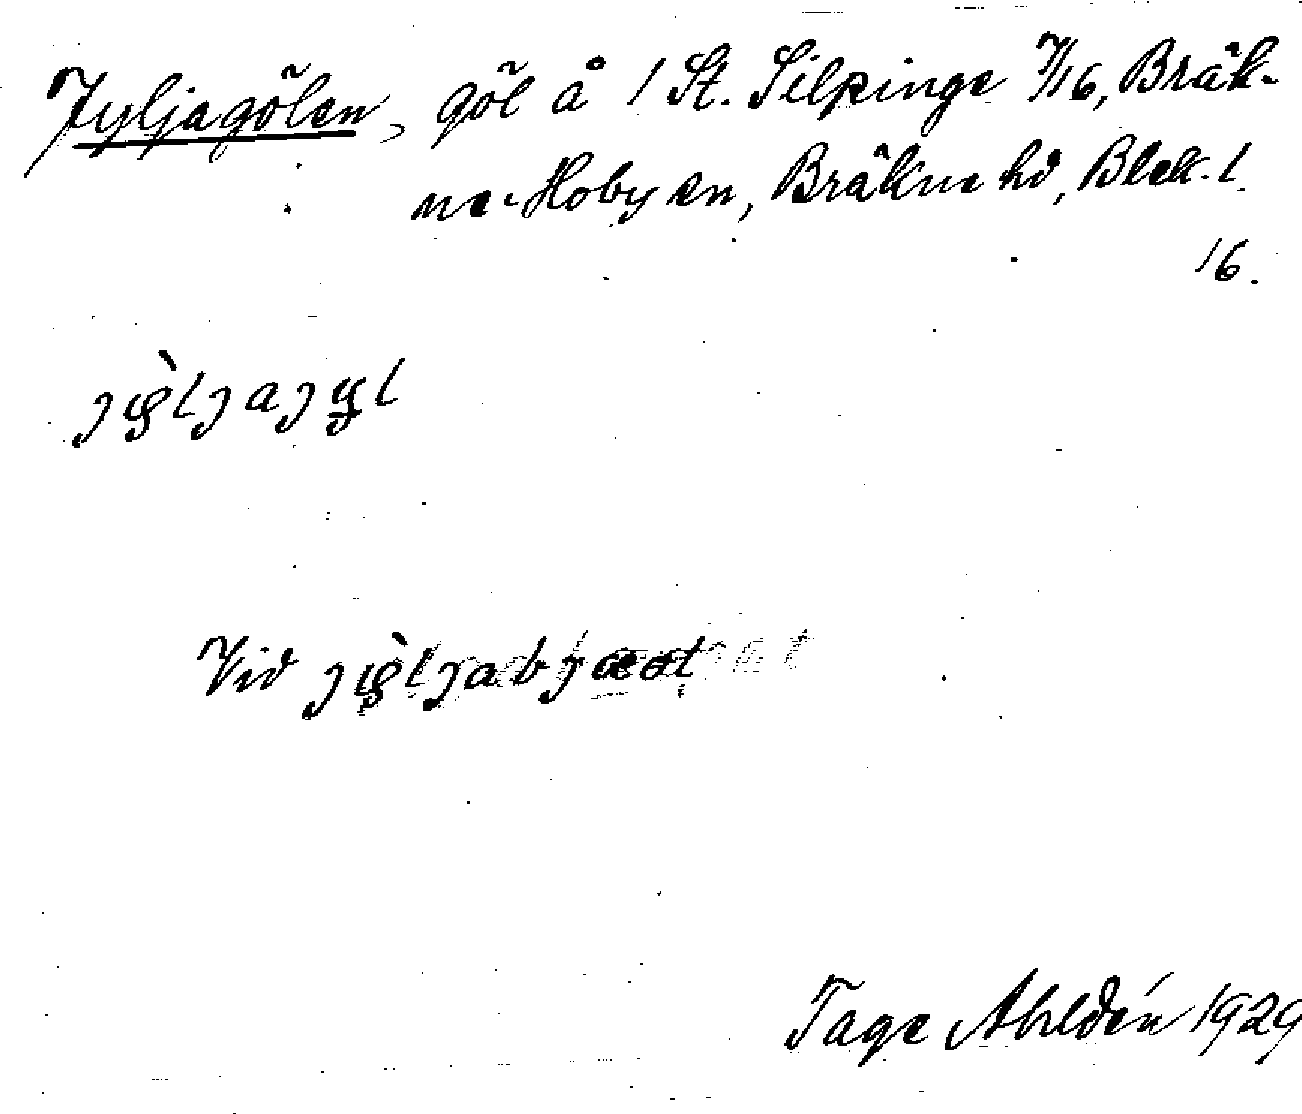 Jyljagölen, göl å 1 St. Silpinge 7/16, Bräk-
ne-Hoby sn, Bräkne hd, Blek. l.
16.
Vid
Tage Ahldén 1929